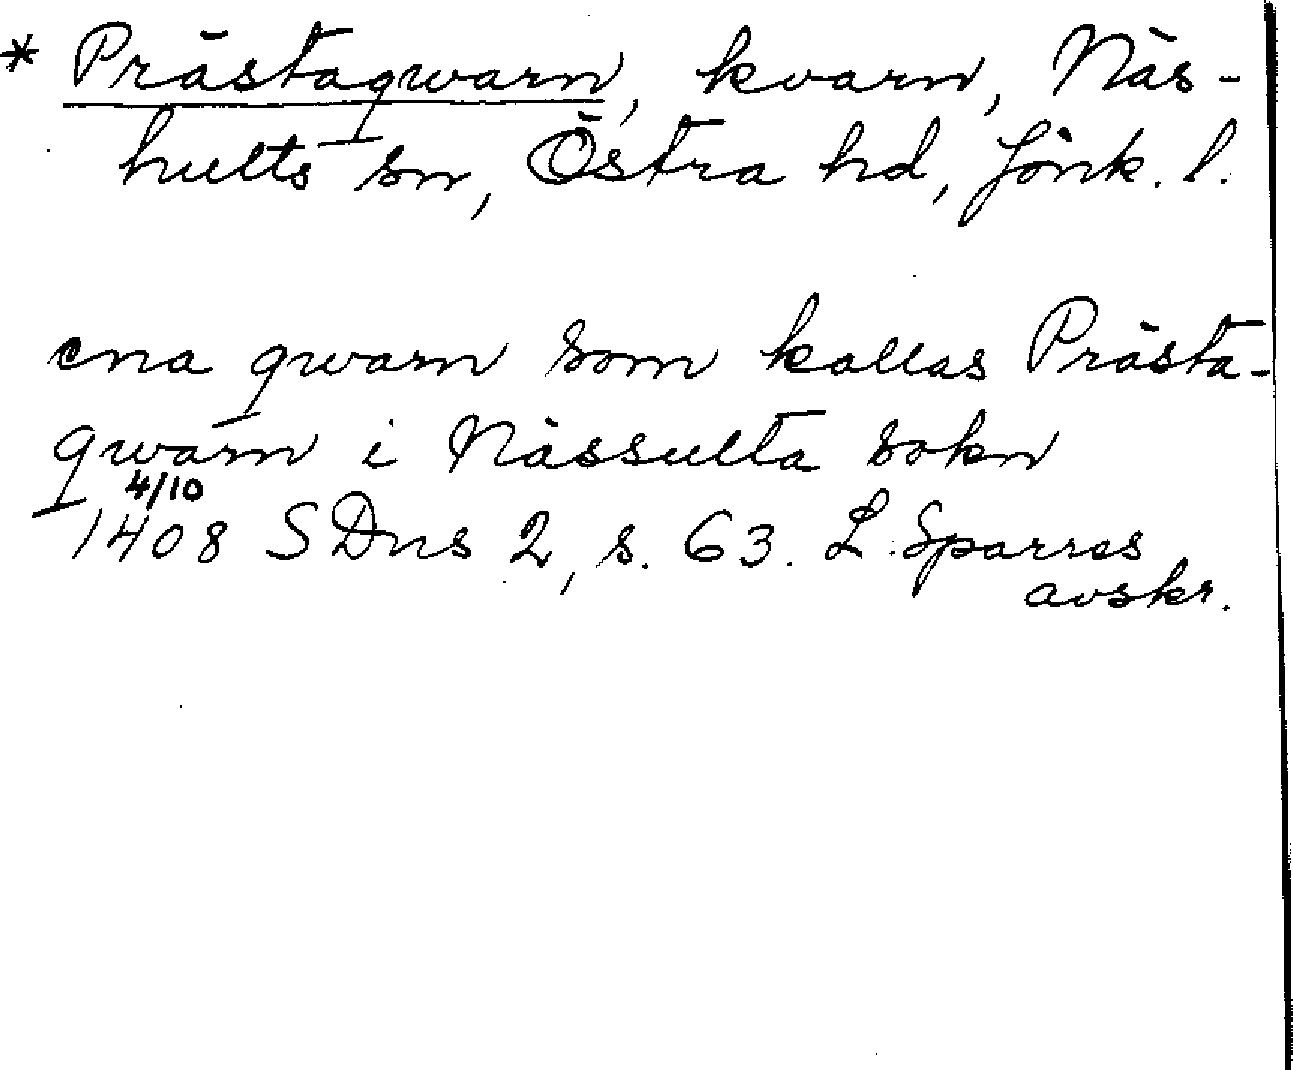 * Prästaqwarn, kvarn, Näs-
hults sn, Östra hd, Jönk. l.
ena qwarn som kallas Prästa-
qwarn i Nässulta sokn
4/10
1408 SDns 2, s. 63. L. Sparres
avskr.